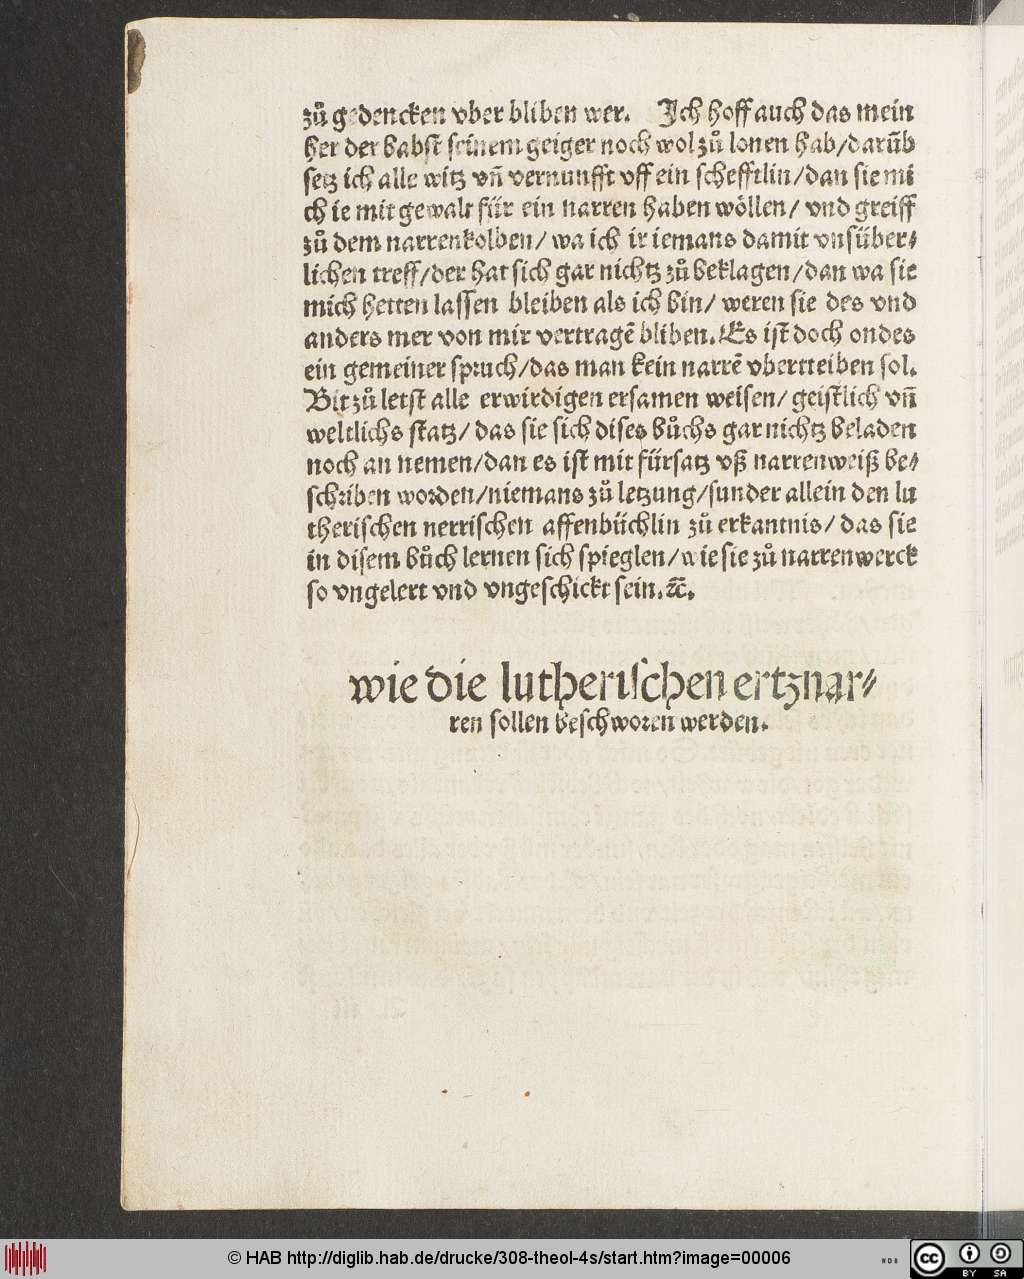 zů gedencken vber bliben wer. Ich hoff auch das mein
her der babst seinem geiger noch wol zů lonen hab/darūb
setz ich alle witz vn̄ vernunfft vff ein schefftlin/dan sie mi
ch ie mit gewalt für ein narren haben wöllen/ vnd greiff
zů dem narrenkolben/ wa ich ir iemans damit vnsüber⸗
lichen treff/der hat sich gar nichtz zů beklagen/dan wa sie
mich hetten lassen bleiben als ich bin/ weren sie des vnd
anders mer von mir vertragē bliben. Es ist doch ondes
ein gemeiner spruch/das man kein narrē vbertreiben sol.
Bit zů letst alle erwirdigen ersamen weisen/ geistlich vn̄
weltlichs statz/ das sie sich dises bůchs gar nichtz beladen
noch an nemen/dan es ist mit fürsatz vß narrenweiß be⸗
schriben worden/niemans zů letzung/sunder allein den lu
therischen nerrischen affenbüchlin zů erkantnis/ das sie
in disem bůch lernen sich spieglen/wie sie zů narrenwerck
so vngelert vnd vngeschickt sein.ꝛc̄.
wie die lutherischen ertznar⸗
ren sollen beschworen werden.
© HAB http://diglib.hab.de/drucke/308-theol-4s/start.htm?image=00006
WDB
cc
BY SA